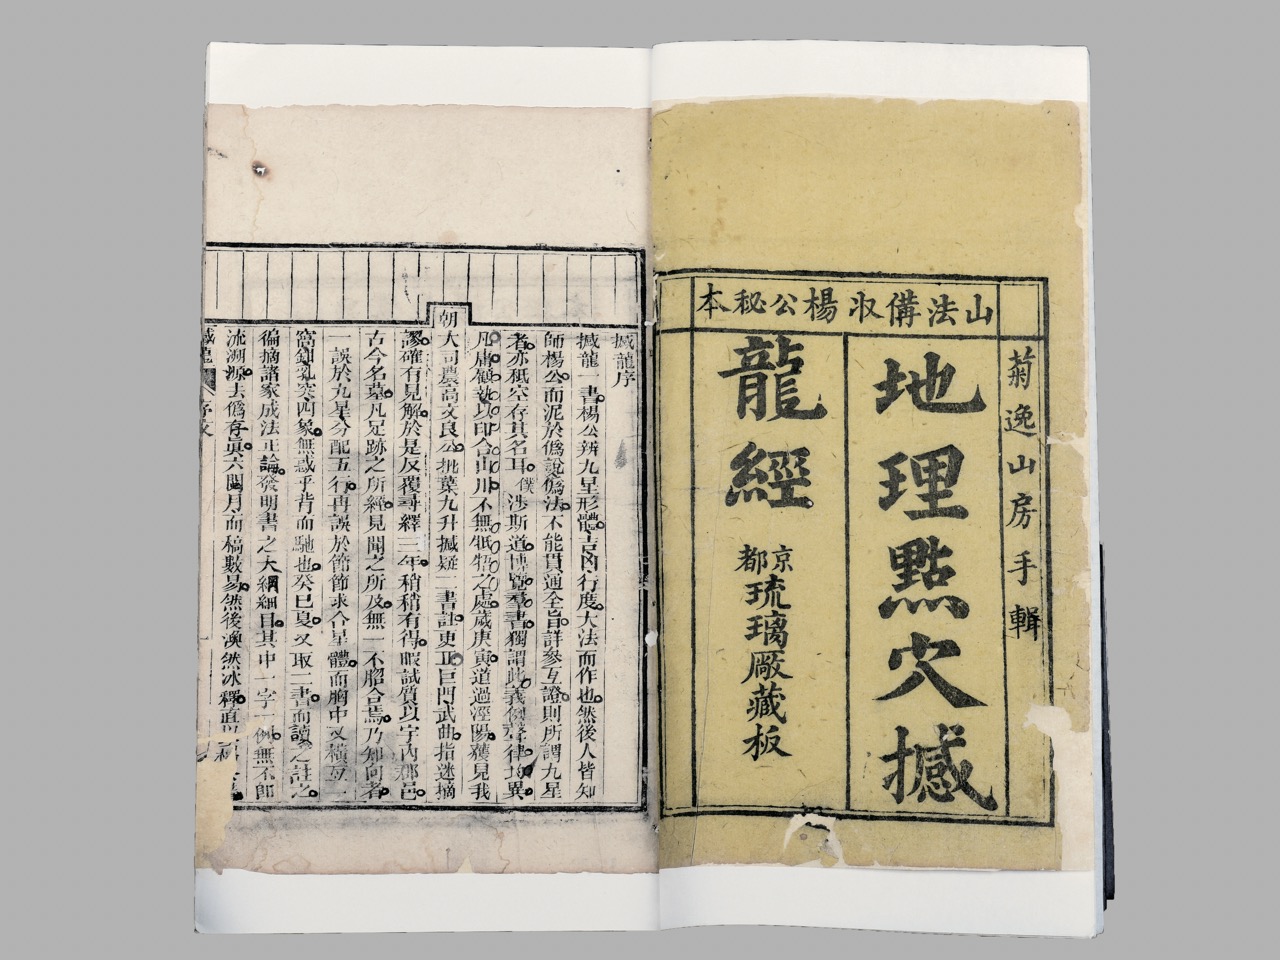 山法備収楊公秘本
菊逸山房手輯
地理點穴撼
龍經
京都琉璃廠藏板
撼龍序
撼龍一書楊公辨九星形體吉凶行度大法而作也然後人皆知
師楊公而泥於僞說僞法不能貫通全旨詳參互證則所謂九星
者亦秪空存其名耳僕涉斯道博覽羣書獨謂此義例聲律均異
凡庸顧執以印合山川不無牴牾之處歲庚寅道過涇陽獲見我
朝大司農高文良公批葉九升撼疑二書註更正巨門武曲指迷摘
謬確有見解於是反覆尋繹三年稍稍有得暇試質以宇內郡邑
古今名墓凡足跡之所經見聞之所及無一不脗合焉乃知向者
一誤於九星分配五行再誤於節節求合星體而胸中又橫亙一
窩鉗乳突四象無惑乎背而馳也癸巳夏又取二書而讀之註之
徧摘諸家成法正論發明書之大綱細目其中一字一例無不卽
流溯源去僞存眞六閱月而稿數易然後渙然冰釋直以
撼龍 序文